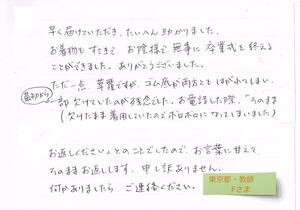 早く届けていただき、たいへん助かりました。
お着物もすてきで、お陰様で無事に卒業式を終える
ことができました。ありがとうございました。
ただ一点、草履ですが、ゴム底が両方ともはがれてしまい、
最初から
一部欠けていたのが残念でした。お電話した際、「そのまま
(欠けたまま着用していたのでボロボロになってしまいました)
お返しください」とのことでしたので、お言葉に甘えて、
そのままお返しします。申し訳ありません。
何かありましたら ご連絡ください。
東京都・教師
Fさま